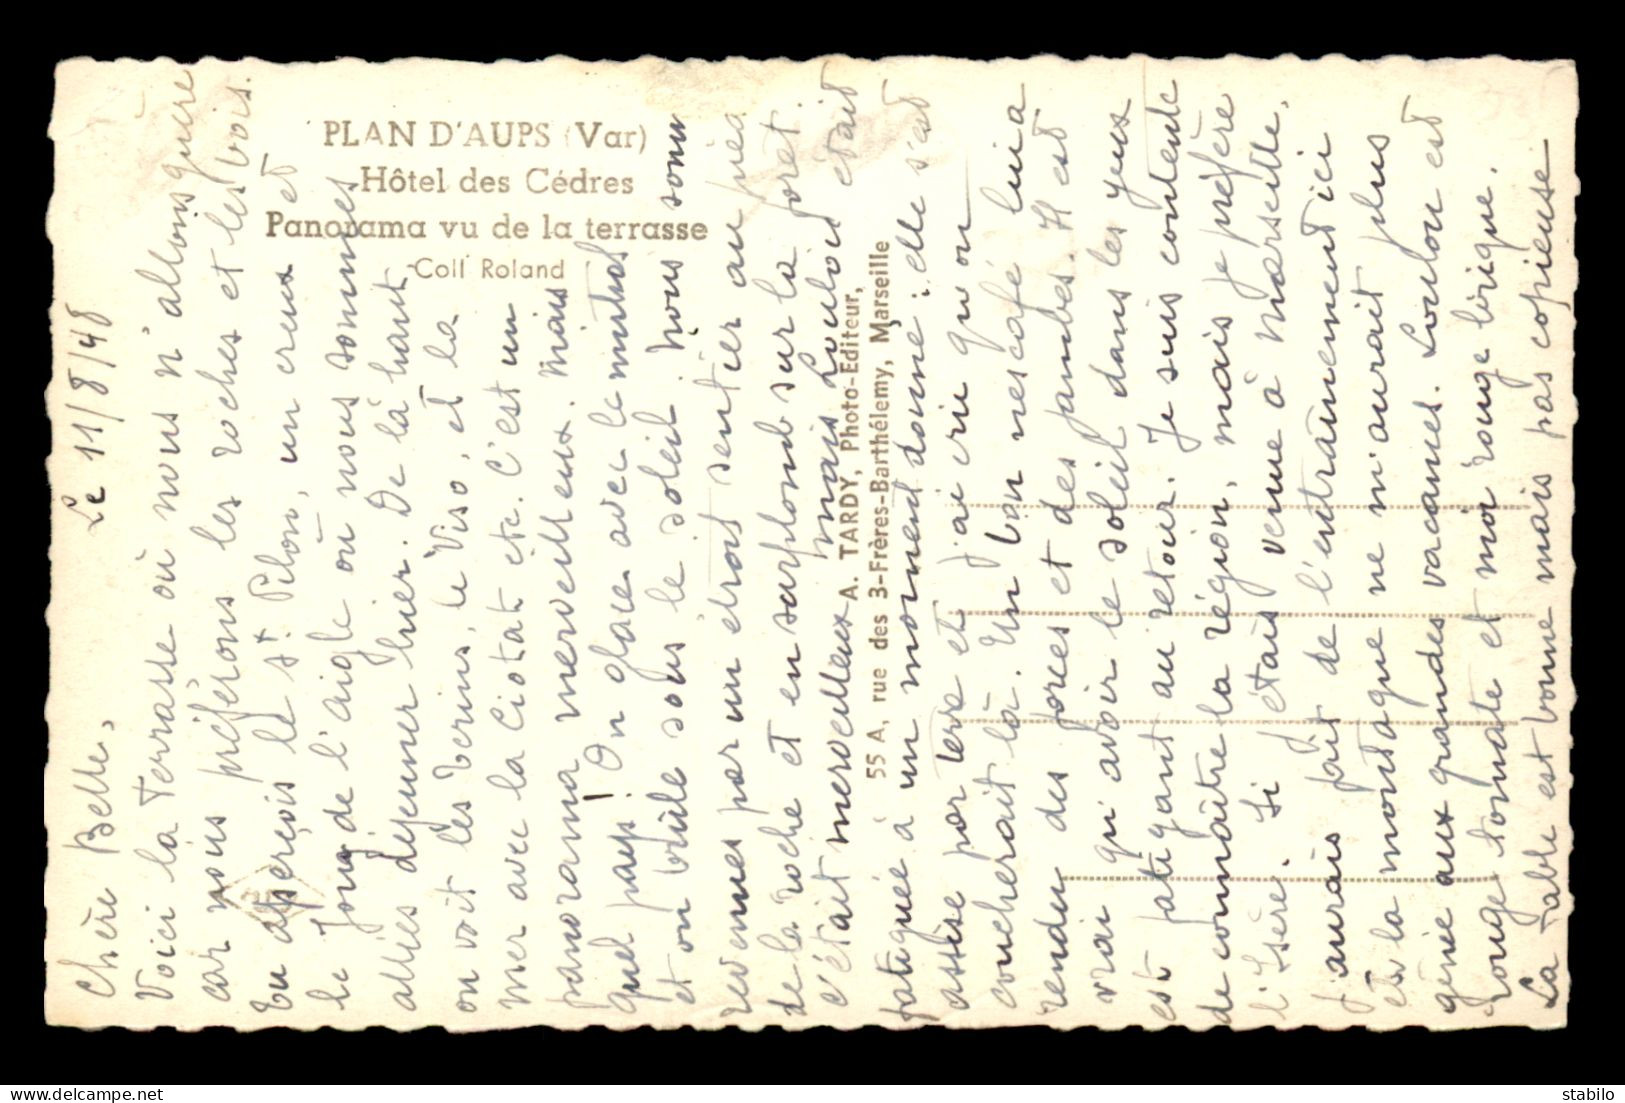 PLAN D'AUPS (Var)
Hôtel des Cédres
Panorama vu de la terrasse
Coll Roland
A. TARDY, Photo-Editeur,
55 A, rue des 3-Frères-Barthélemy, Marseille
Le 11/8/48
Chère Belle,
Voici la Terrasse où nous n'allons guère
car nous préférons les roches et les bois.
Tu aperçois le St. Pilon, un creux et
le Joug de l'aigle où nous sommes
allées dejeuner hier. De là haut
on voit les le Viso, et la
mer avec la Ciotat etc. C'est un
panorama merveilleux. Mais
quel pays! On glace avec le mistral
et on brûle sous le soleil. Nous sommes
revenues par un étroit sentier au pied
de la roche et en surplomb sur la forêt
c'était merveilleux mais Loulou était
fatiguée à un moment donné: elle s'est
assise par terre et j'ai cru qu'on
coucherait là. Un bon nescafé lui a
rendu des forces et des jambes. Il est
vrai qu'avoir le soleil dans les yeux
est fatigant au retour. Je suis contente
de connaître la région, mais je préfère
l'Isère! Si j'étais venue à Marseille,
j'aurais fait de l'entraînement ici
et la montagne ne m'aurait plus
gênée aux grandes vacances. Loulou est
rouge tomate et moi rouge brique.
La Table est bonne mais pas copieuse
stabilo